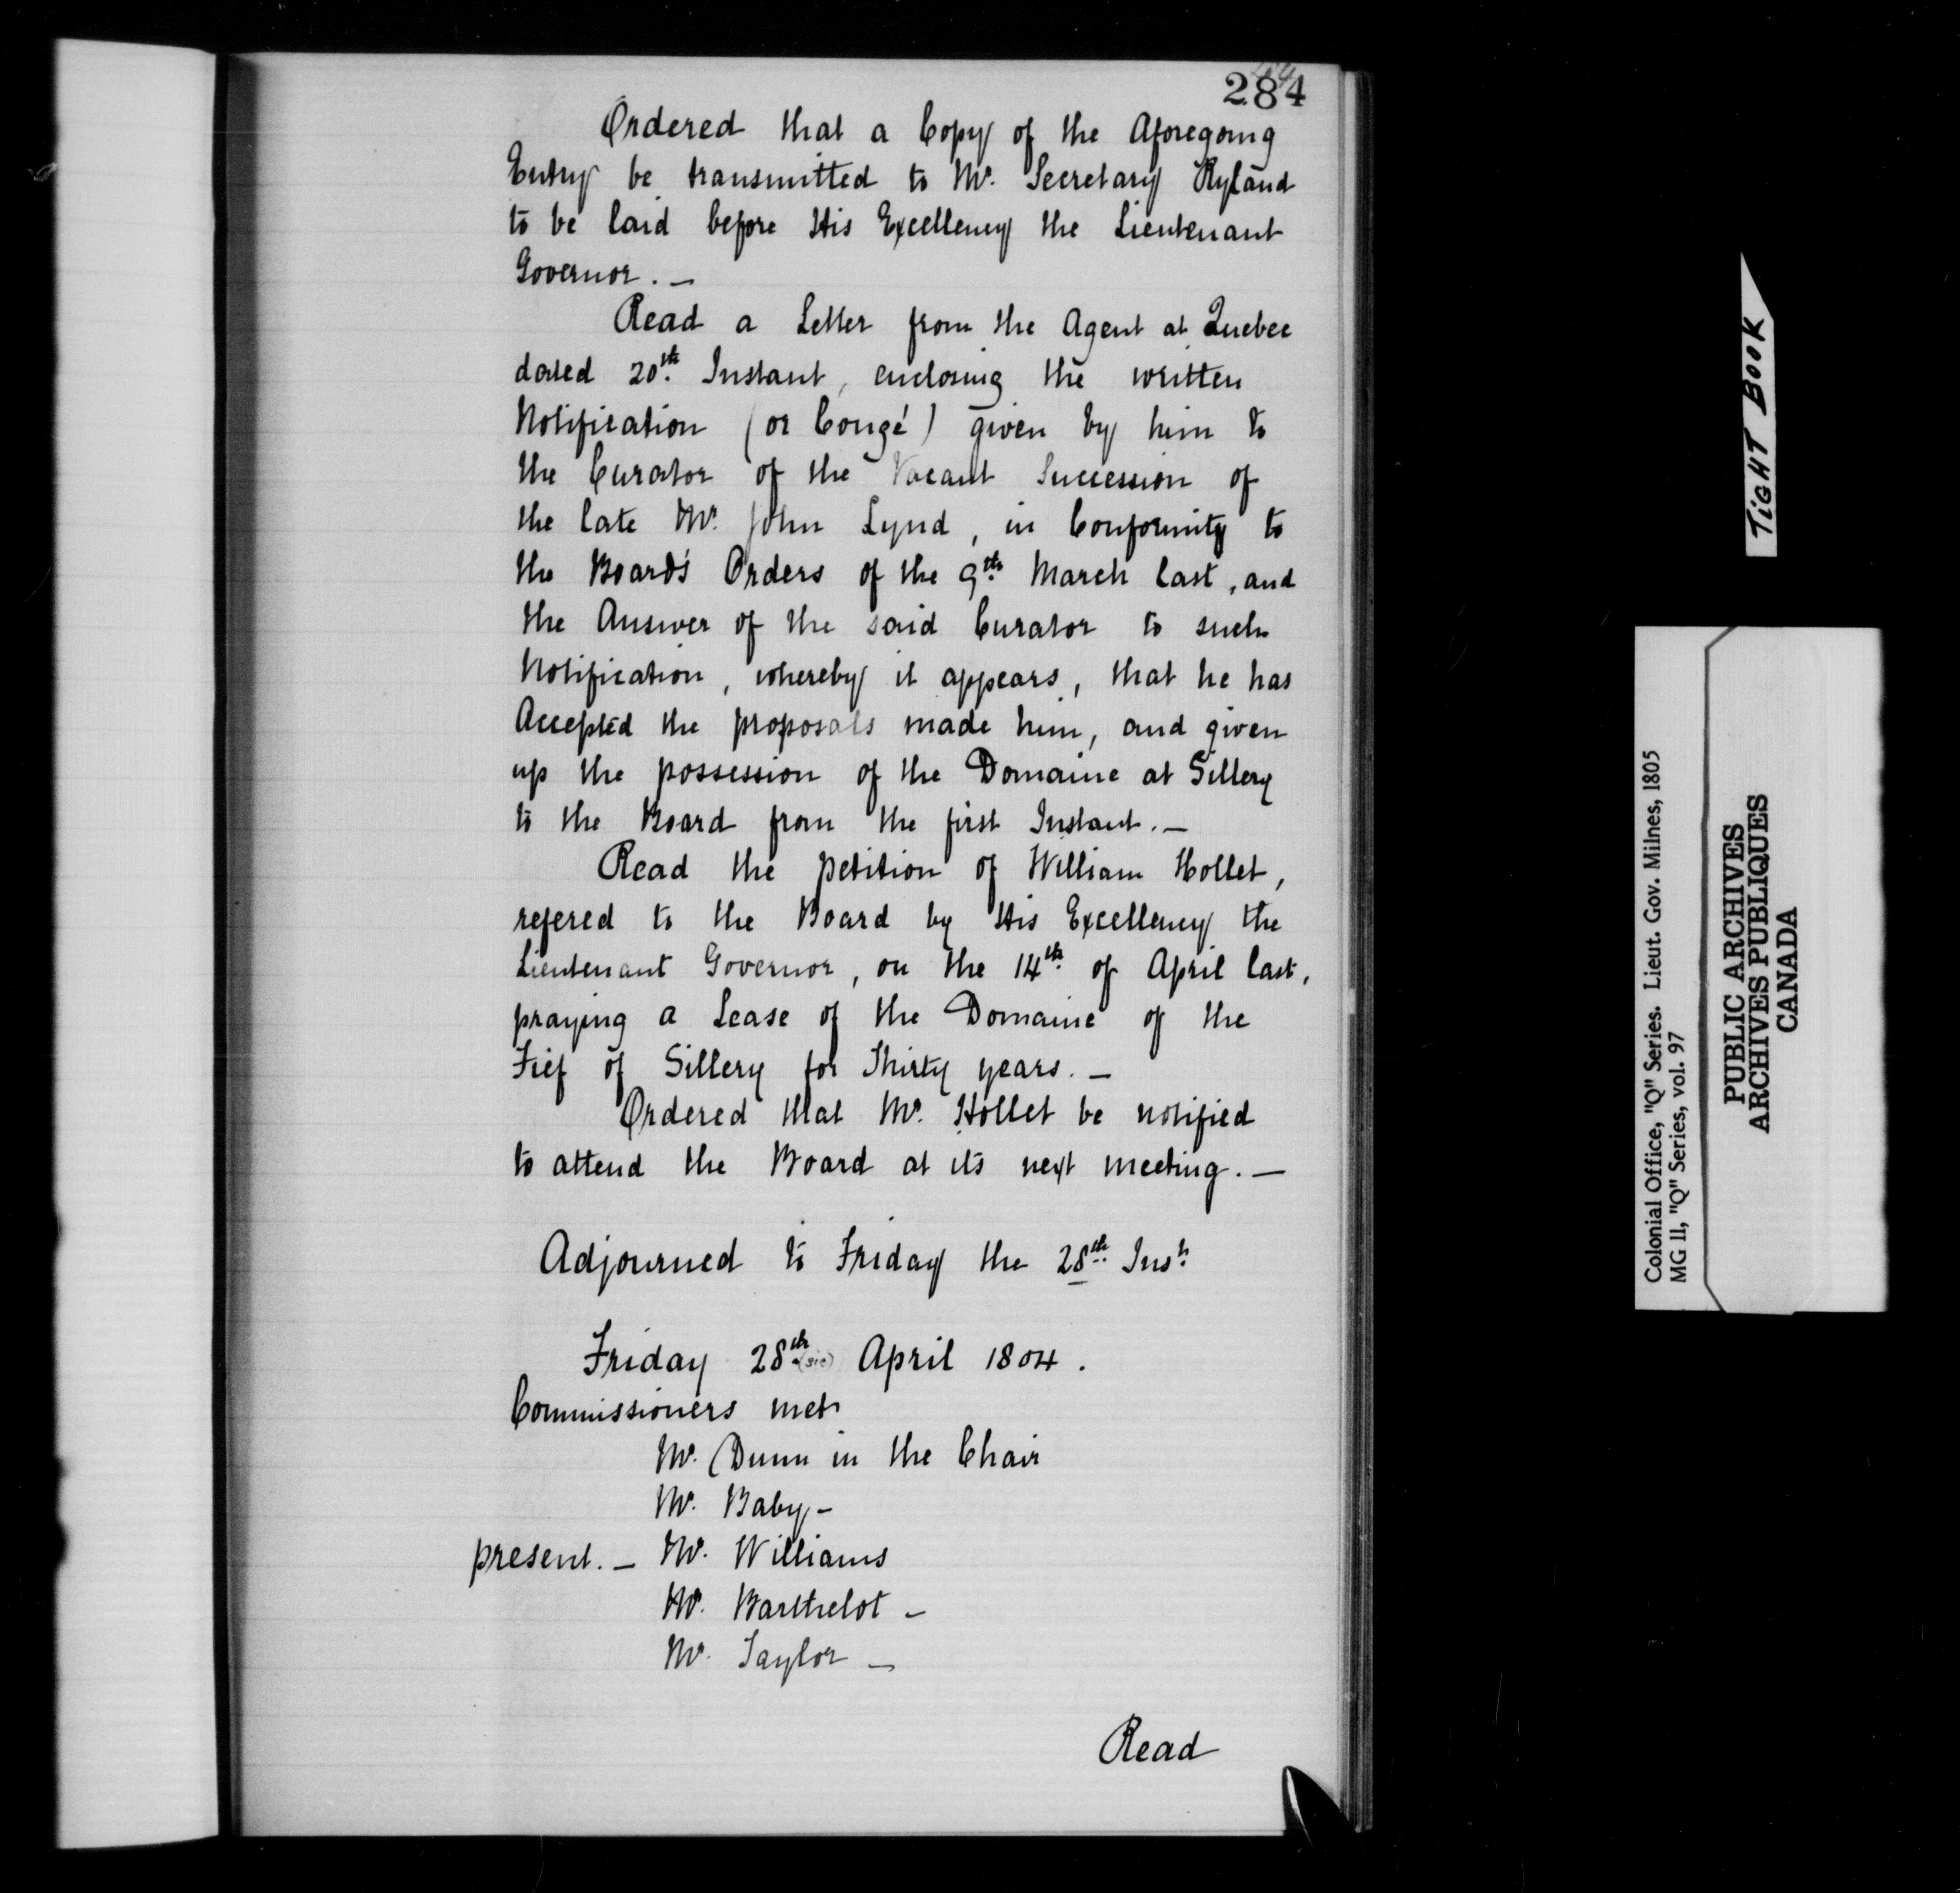 284
Ordered that a Copy of the Aforegoing
Entry be transmitted to Mr. Secretary Ryland
to be laid before His Excellency the Lieutenant
Governor. —
Read a Letter from the Agent at Quebec
dated 20th. Instant, enclosing the written
Notification (or Congé) given by him to
the Curator of the Vacant Succession of
the late Mr. John Lynd, in Conformity to
the Board's Orders of the 9th. March last, and
the Answer of the said Curator to such
Notification, whereby it appears, that he has
Accepted the proposals made him, and given
up the possession of the Domaine at Sillery
to the Board from the first Instant. —
Read the petition of William Hollet,
refered to the Board by His Excellency the
Lieutenant Governor, on the 14th. of April last,
praying a Lease of the Domaine of the
Fief of Sillery for Thirty years. —
Ordered that Mr. Hollet be notified
to attend the Board at its next meeting. —
Adjourned to Friday the 28th. Inst.
Friday 28th. (sic) April 1804.
Commissioners met
Mr. Dunn in the Chair
Mr. Baby —
present. — Mr. Williams
Mr. Barthelot —
Mr. Taylor —
Read
TIGHT BOOK
Colonial Office, "Q" Series. Lieut. Gov. Milnes, 1805
MG 11, "Q" Series, vol. 97
PUBLIC ARCHIVES
ARCHIVES PUBLIQUES
CANADA